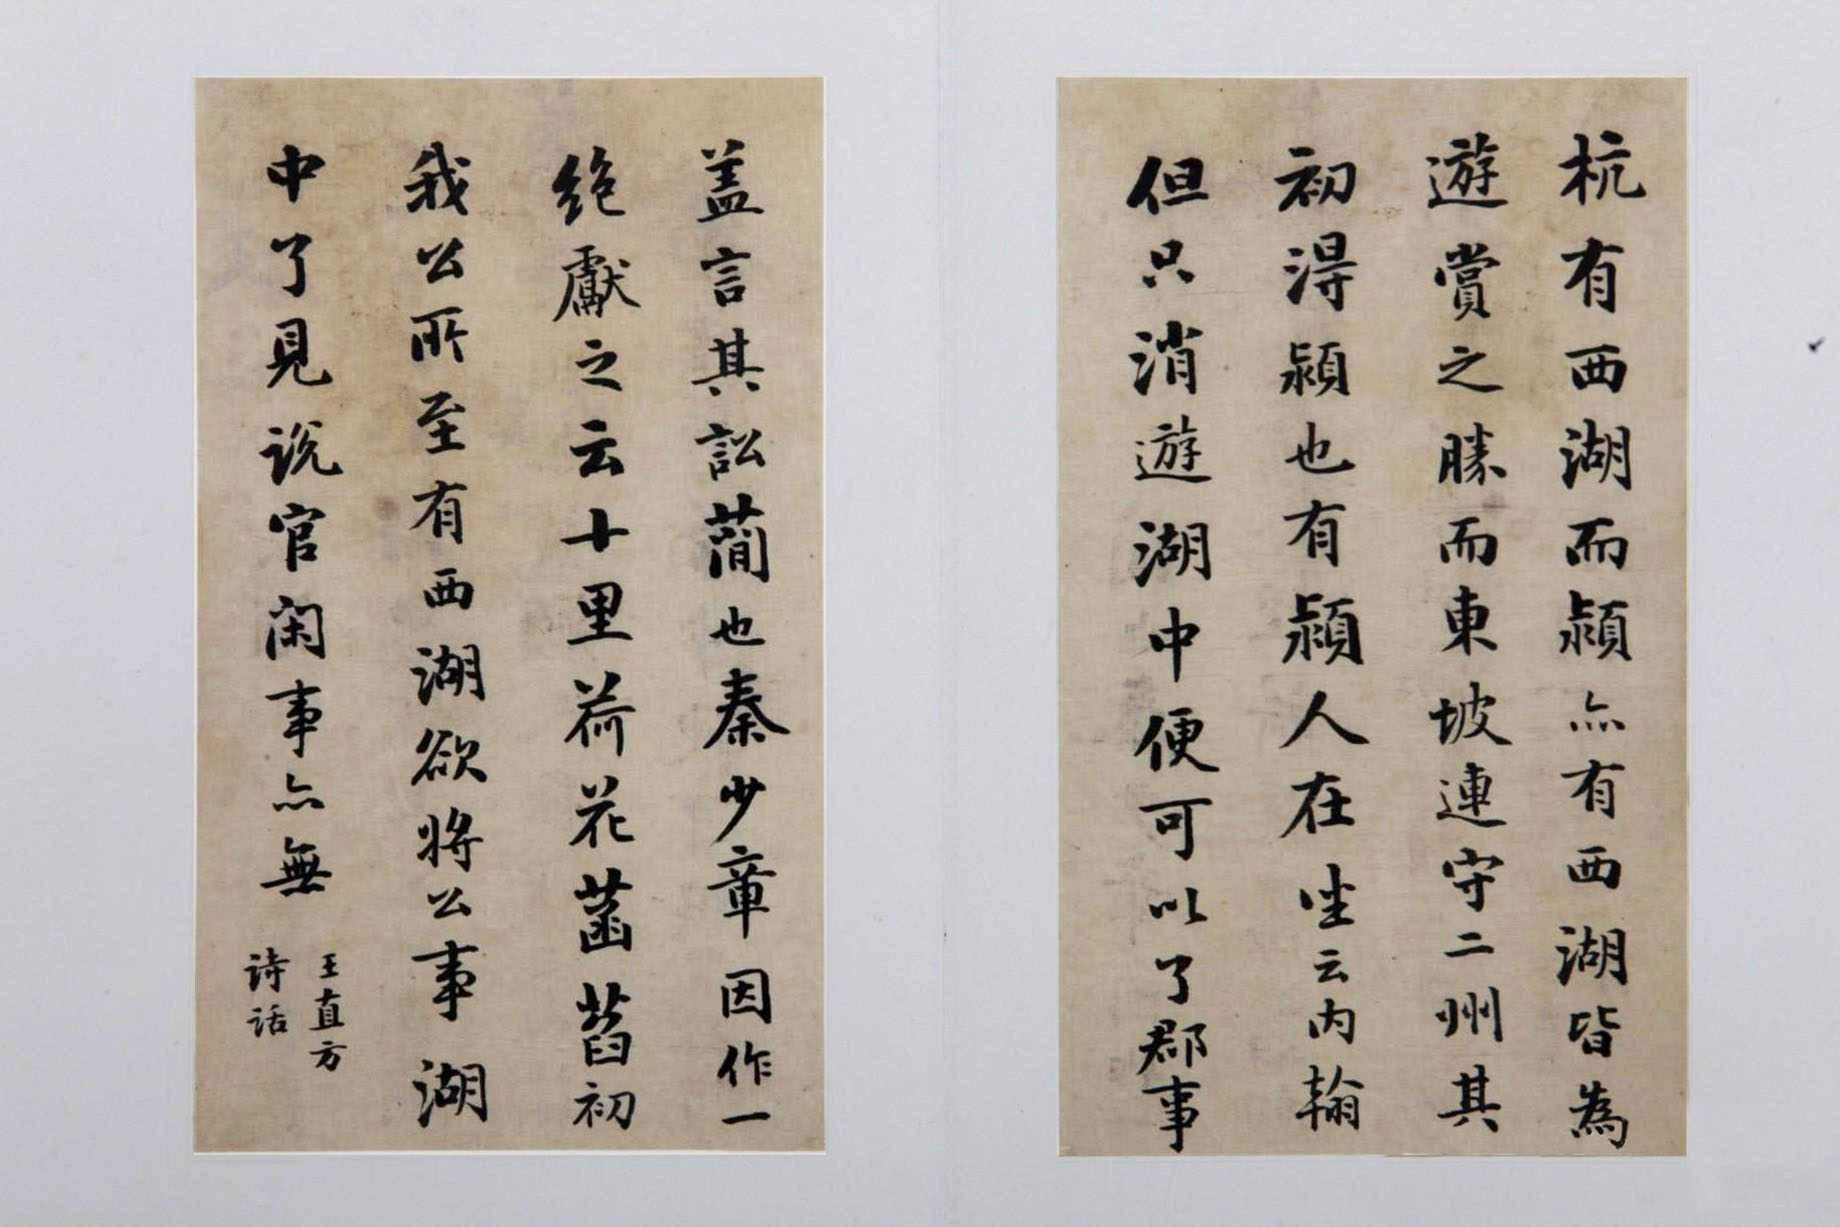 杭有西湖而潁亦有西湖皆為
遊賞之勝而東坡連守二州其
初得潁也有潁人在坐云内翰
但只消遊湖中便可以了郡事
蓋言其訟簡也秦少章因作一
絶獻之云十里荷花菡萏初
我公所至有西湖欲將公事湖
中了見說官閑事亦無
王直方
詩話